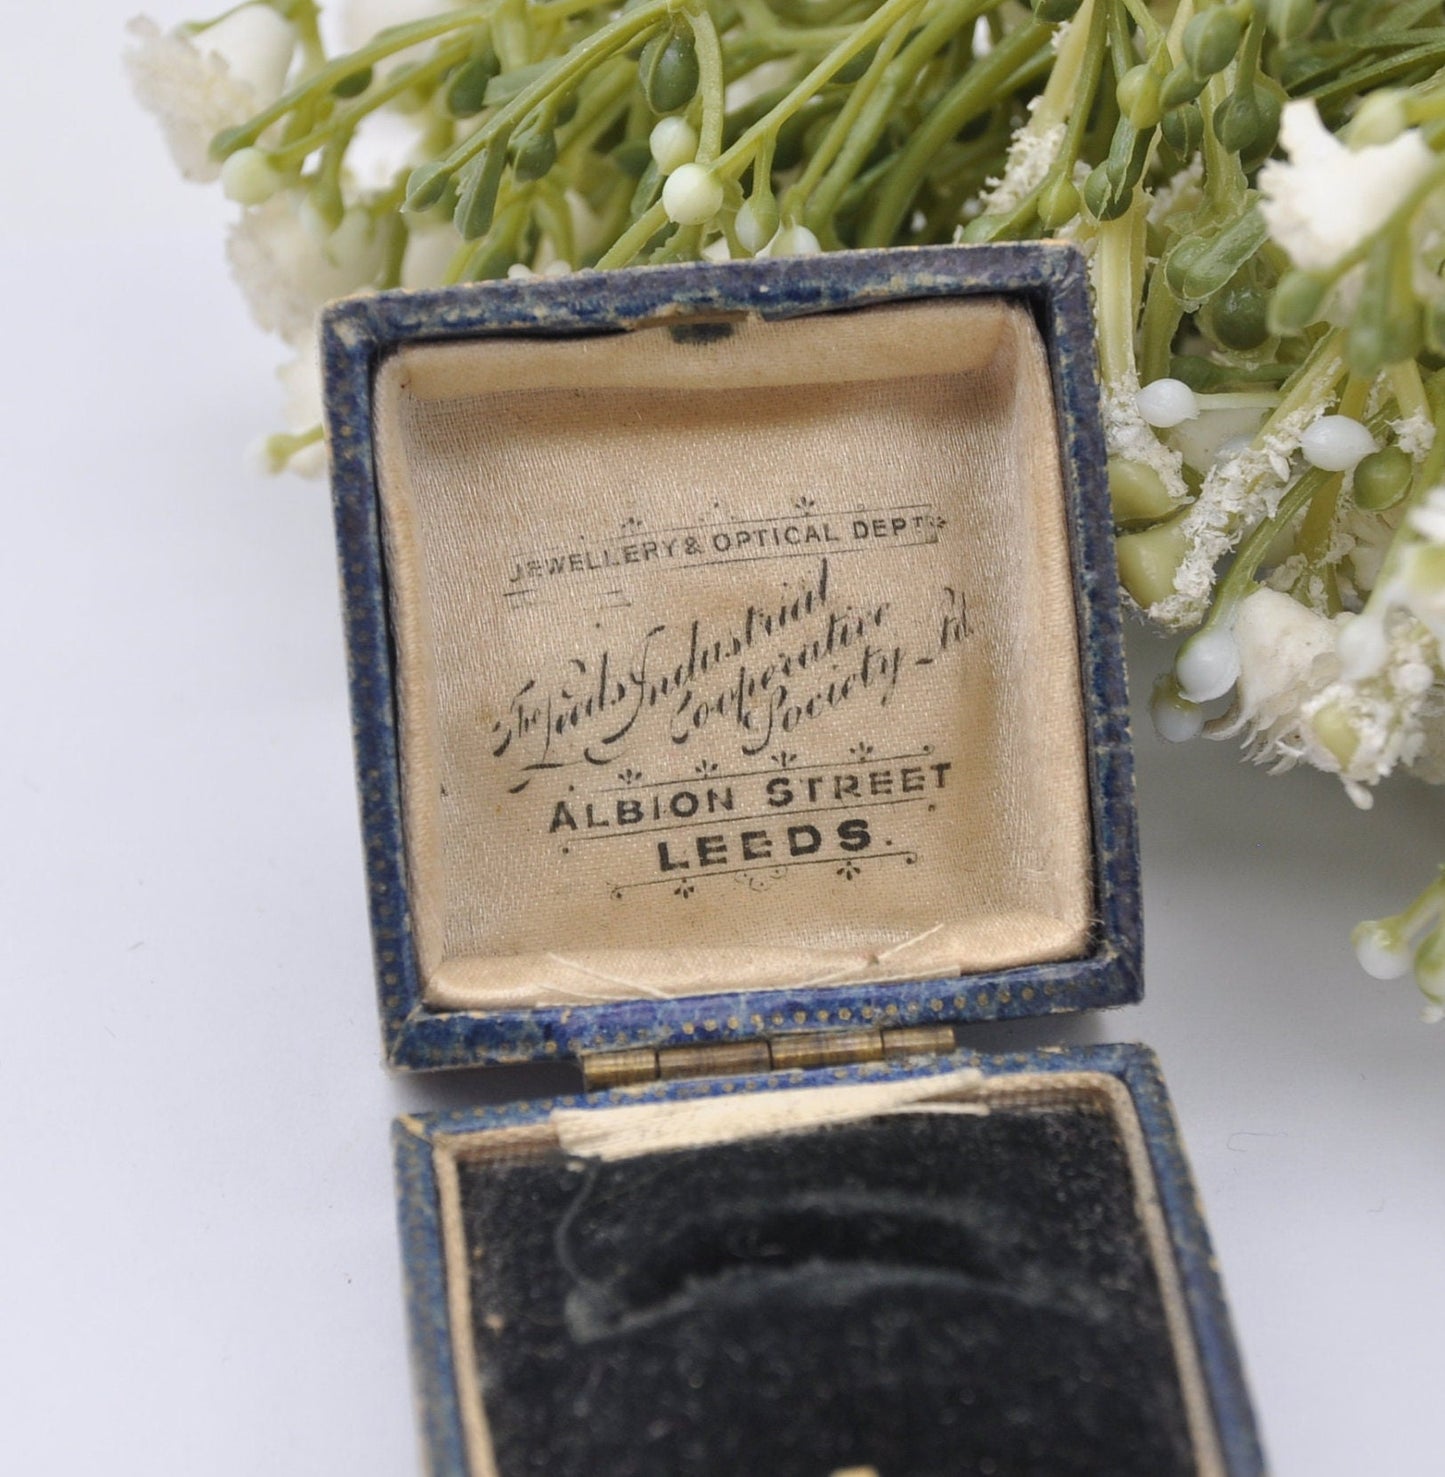 JEWELLERY & OPTICAL DEPT
The Leeds Industrial
Cooperative
Society Ltd.
ALBION STREET
LEEDS.